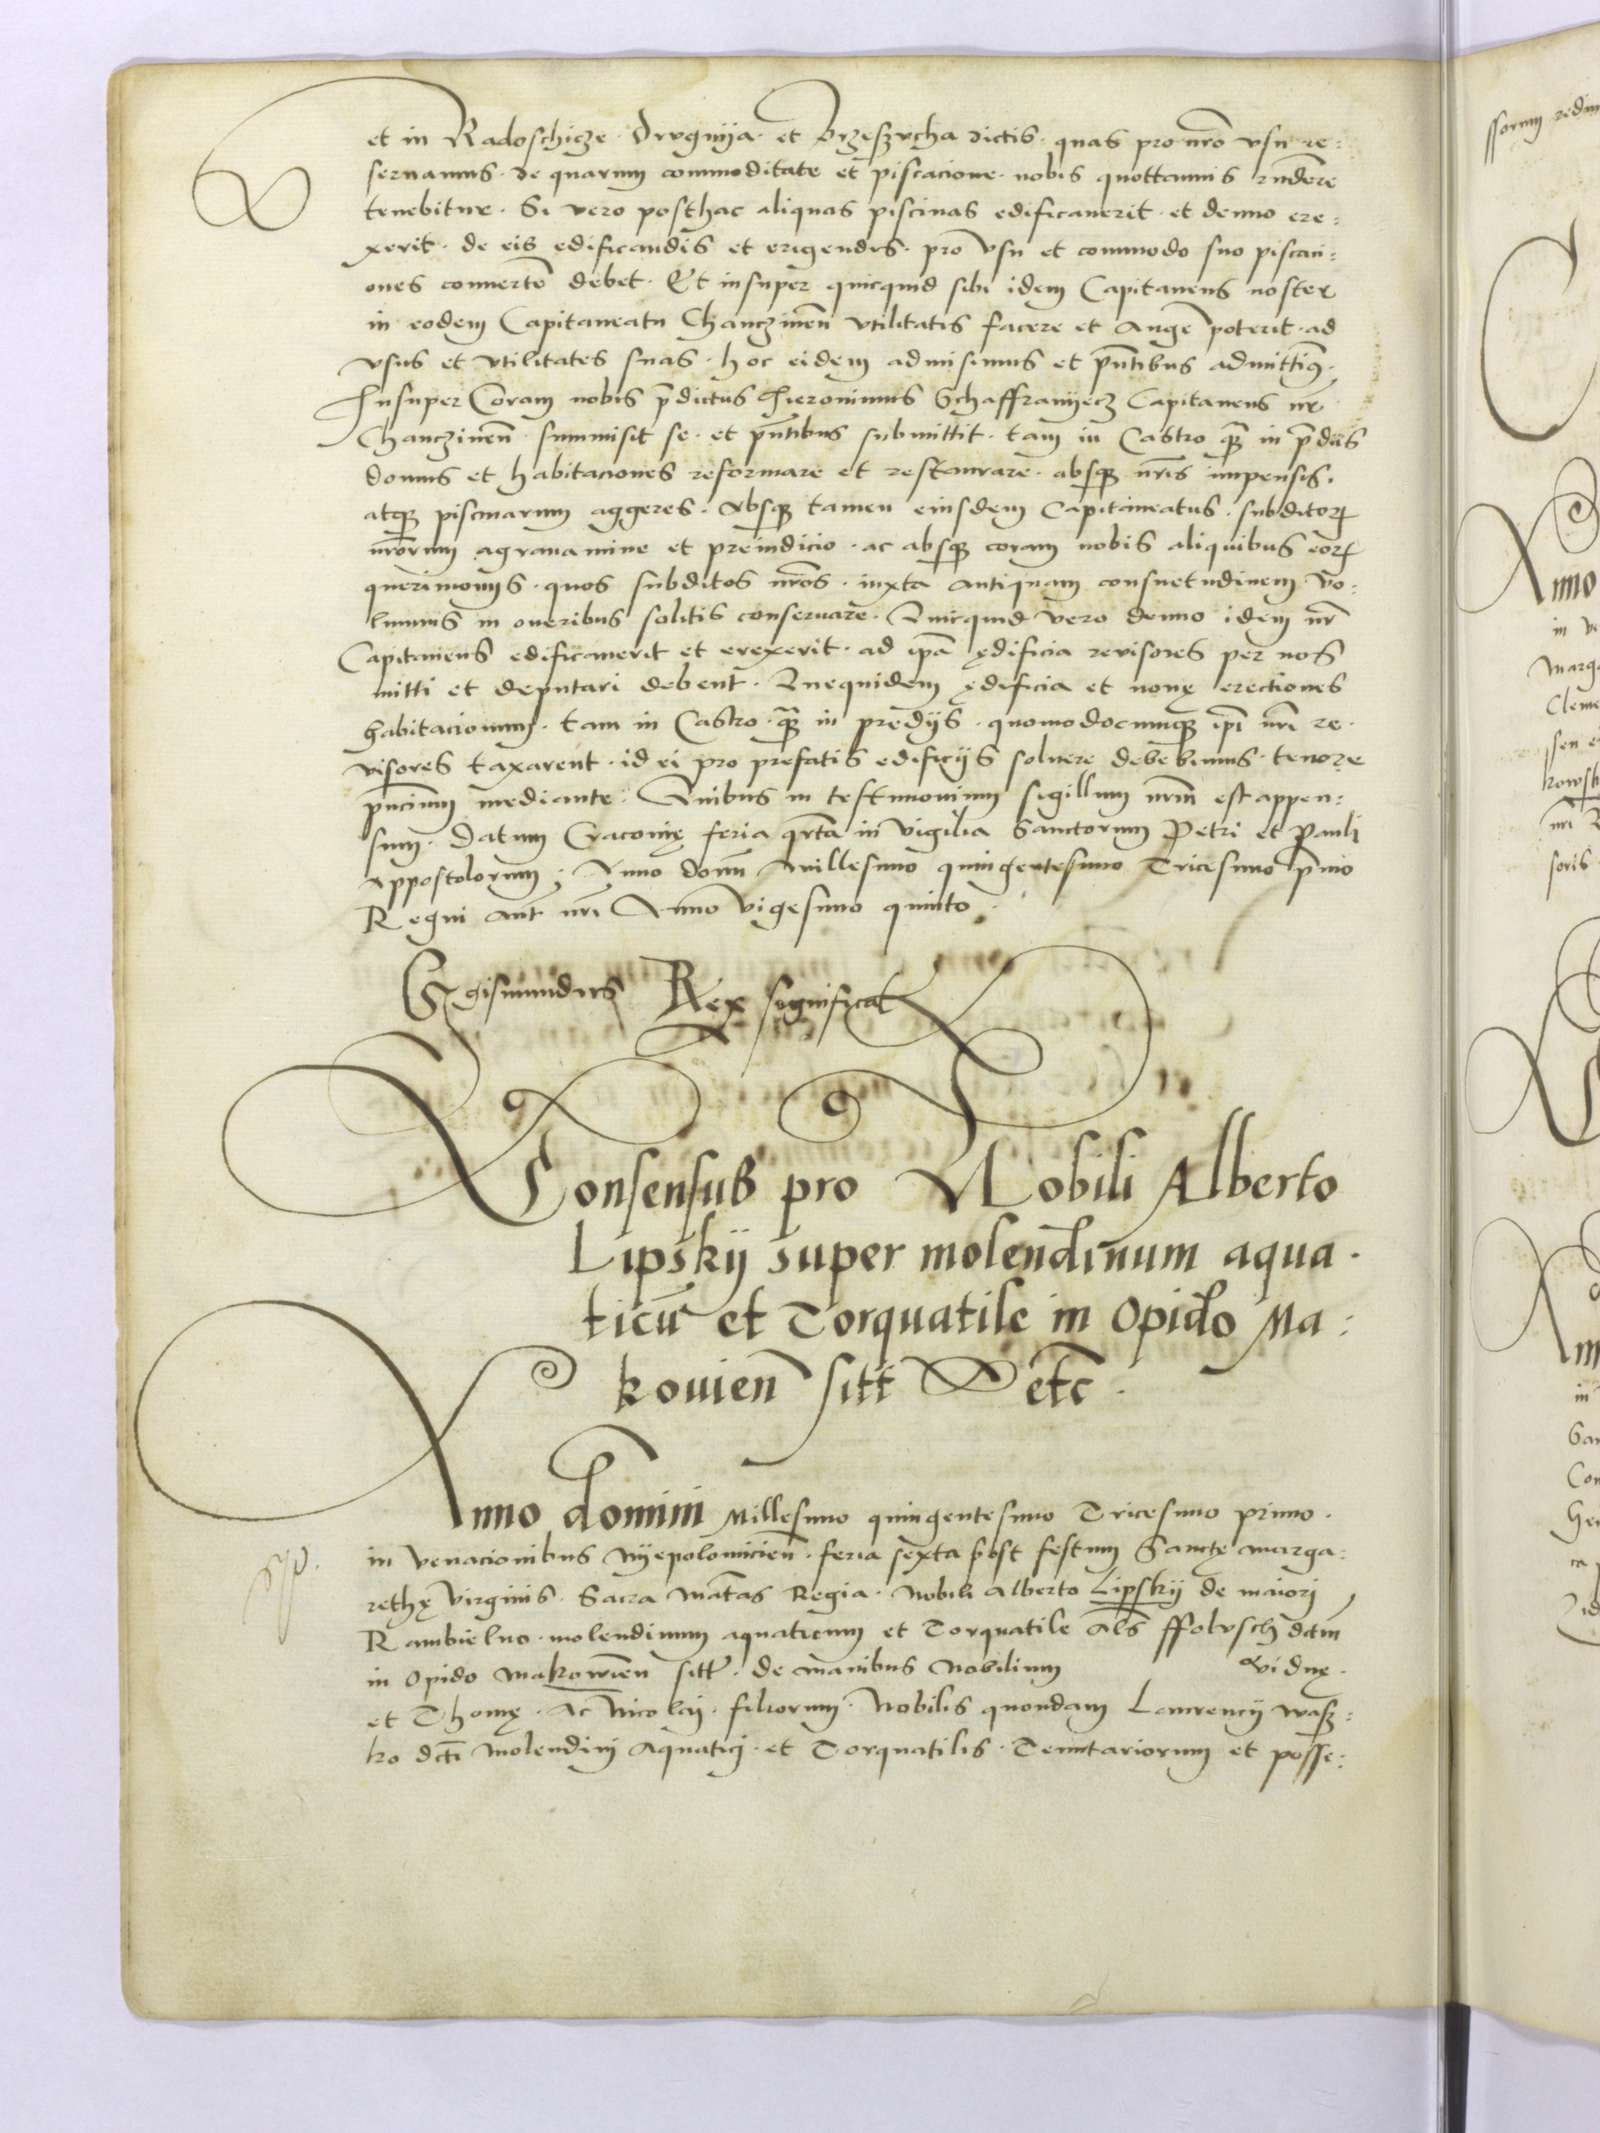 et in Radoschicze · Drvgnija · et Brzeszvcha dictis · quas pro nr̄o vsu re:
seruamus · de quarum commoditate et piscacione · nobis quottannis rn̄dere
tenebitur · Si vero posthac aliquas piscinas edificauerit · et denuo ere:
xerit · de eis edificandis et erigendis · pro vsu et commodo suo piscaci:
ones conuertē debet · Et insuper quicquid sibi idem Capitaneus noster
in eodem Capitaneatu Chanczinen̄ vtilitatis facere et augē poterit · ad
vsus et vtilitates suas · hoc eidem admisimus et pn̄tibus admittim9 ·
Insuper Coram nobis p̄dictus Hieronimus Schaffranijecz Capitaneus nr̄
Chanczinen̄ · summisit se · et pn̄tibus submittit · tam in Castro q̄ꝫ in p̄diis
domus et habitaciones reformare et restaurare · absqꝫ nr̄is impensis ·
atqꝫ piscinarum aggeres · Absqꝫ tamen eiusdem Capitaneatus · subditorꝝ
nr̄orum agrauamine et preiudicio · ac absqꝫ coram nobis aliquibus eorꝝ
querimonijs · quos subditos nr̄os · iuxta antiquam consuetudinem vo:
lumus in oneribus solitis conseruare · Quicquid vero denuo idem nr̄
Capitaneus edificauerit et erexerit · ad ip̄a ędificia reuisores per nos
mitti et deputari debent · Quequidem ędificia et nouę erectiones
habitacionum · tam in Castro · q̄ꝫ in predijs · quomodocunqꝫ ip̄i nr̄i re ·
uisores taxarent · id ei pro prefatis edificijs soluere debebimus · tenore
pn̄cium mediante · Quibus in testimonium sigillum nr̄m est appen:
sum · Datum Cracouię feria qr̄ta in vigilia Sanctorum Petri et Pauli
Appostolorum ; Anno domī Millesimo quingentesimo Tricesimo p̄mo
Regni aut̄ nr̄i Anno vigesimo quinto ·
Sigismundus Rex significat
Consensus pro Nobili Alberto
Lipskij super molendinum aqua ·
ticū et Torquatile in Opido Ma :
kouien̄ sitt etc̄ ·
Anno domini Millesimo quingentesimo Tricesimo primo ·
in venacionibus Nijepolomicien̄ · feria sexta post festum Sanctę Marga:
rethę virginis · Sacra Mātas Regia · Nobili Alberto Lipskij de maiori
Rambielno · molendinum aquaticum et Torquatile al̄s ffolvsch dctm̄
in Opido Makowien̄ sitt · de manibus Nobilium viduę ·
et Thomę · Ac Nicolai · filiorum · Nobilis quondam Laurencij wasz:
ko dcti Molendini Aquatici · et Torquatilis · Tenutariorum et posse: